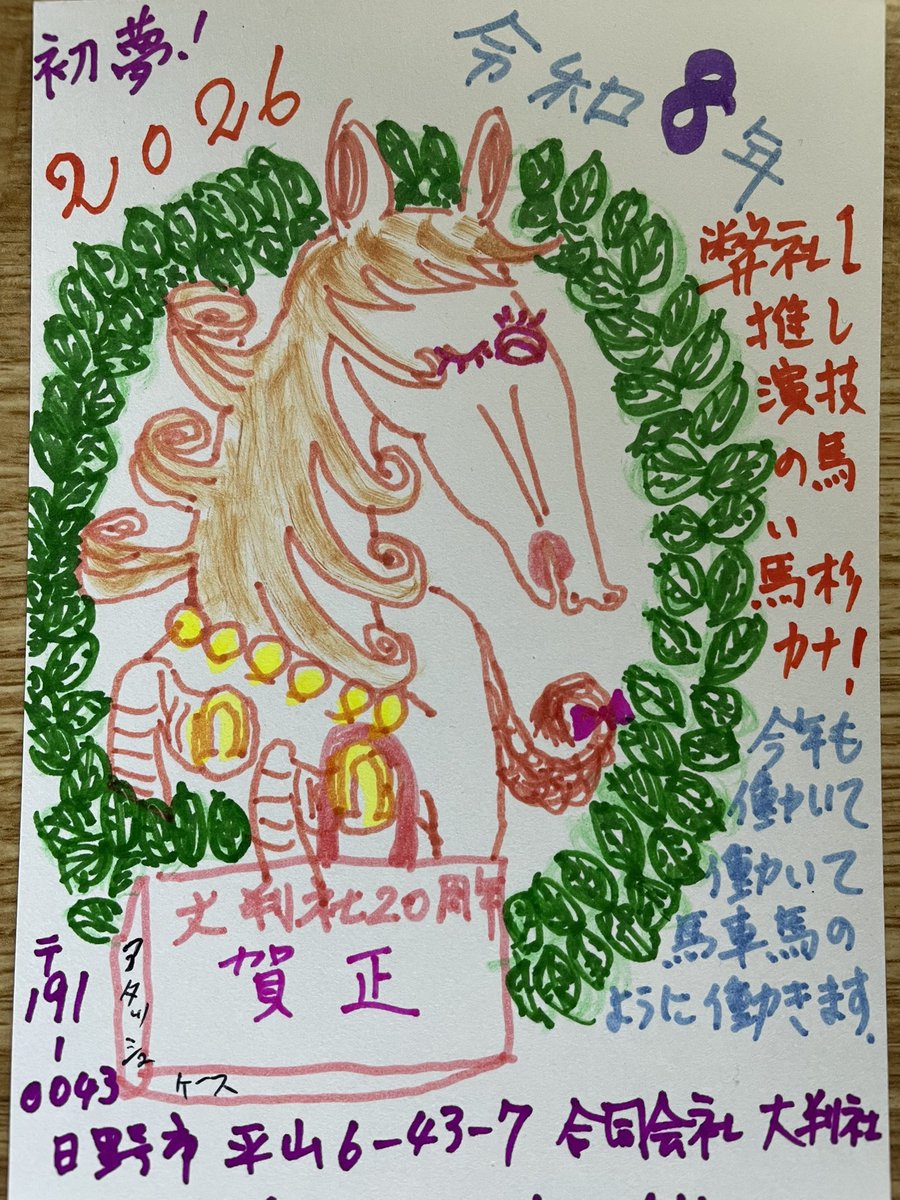 初夢!
2026
令和8年
弊社1
推し
演技
の馬
い
馬杉
カナ!
今年も
働いて
働いて
馬車馬の
ように働きます.
大判社20周年
賀正
アタッシュ
ケース
〒
191
-
0043
日野市 平山6-43-7 合同会社 大判社